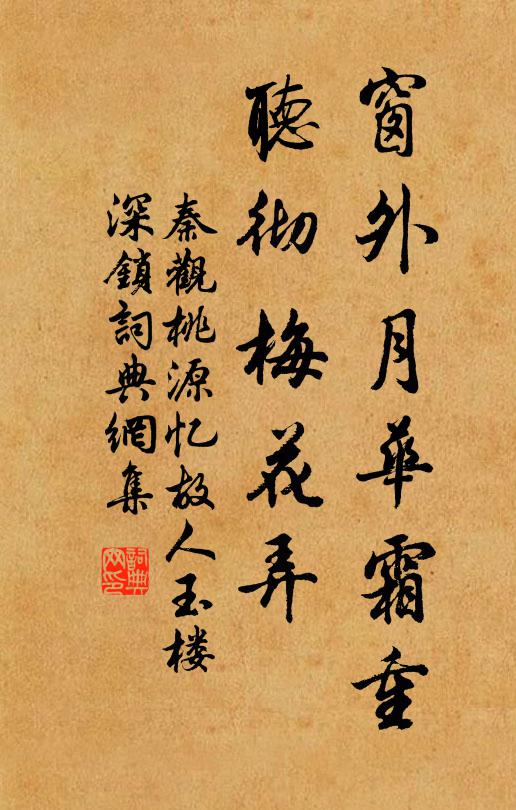 窗外月華霜重
聽彻梅花弄
秦觀桃源忆故人玉楼
深鎖詞典網集
詞典
网印